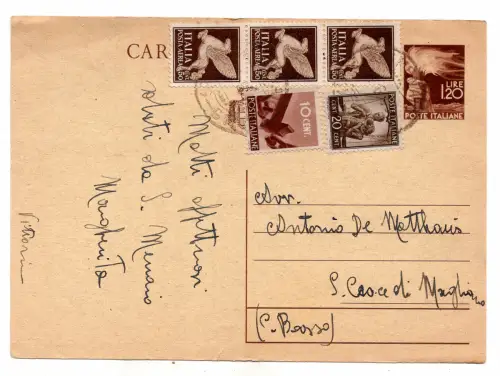 CAR
ITALIA
POSTA AEREA
ITALIA
POSTA AEREA
ITALIA
POSTA AEREA
LIRE
1,20
POSTE ITALIANE
10 CENT.
POSTE ITALIANE
20 CENT
POSTE ITALIANE
Molti affettuosi
saluti da S. Menaio
Margherita
Avv.
Antonio De Matthaeis
S. Croce di Magliano
(C. Basso)